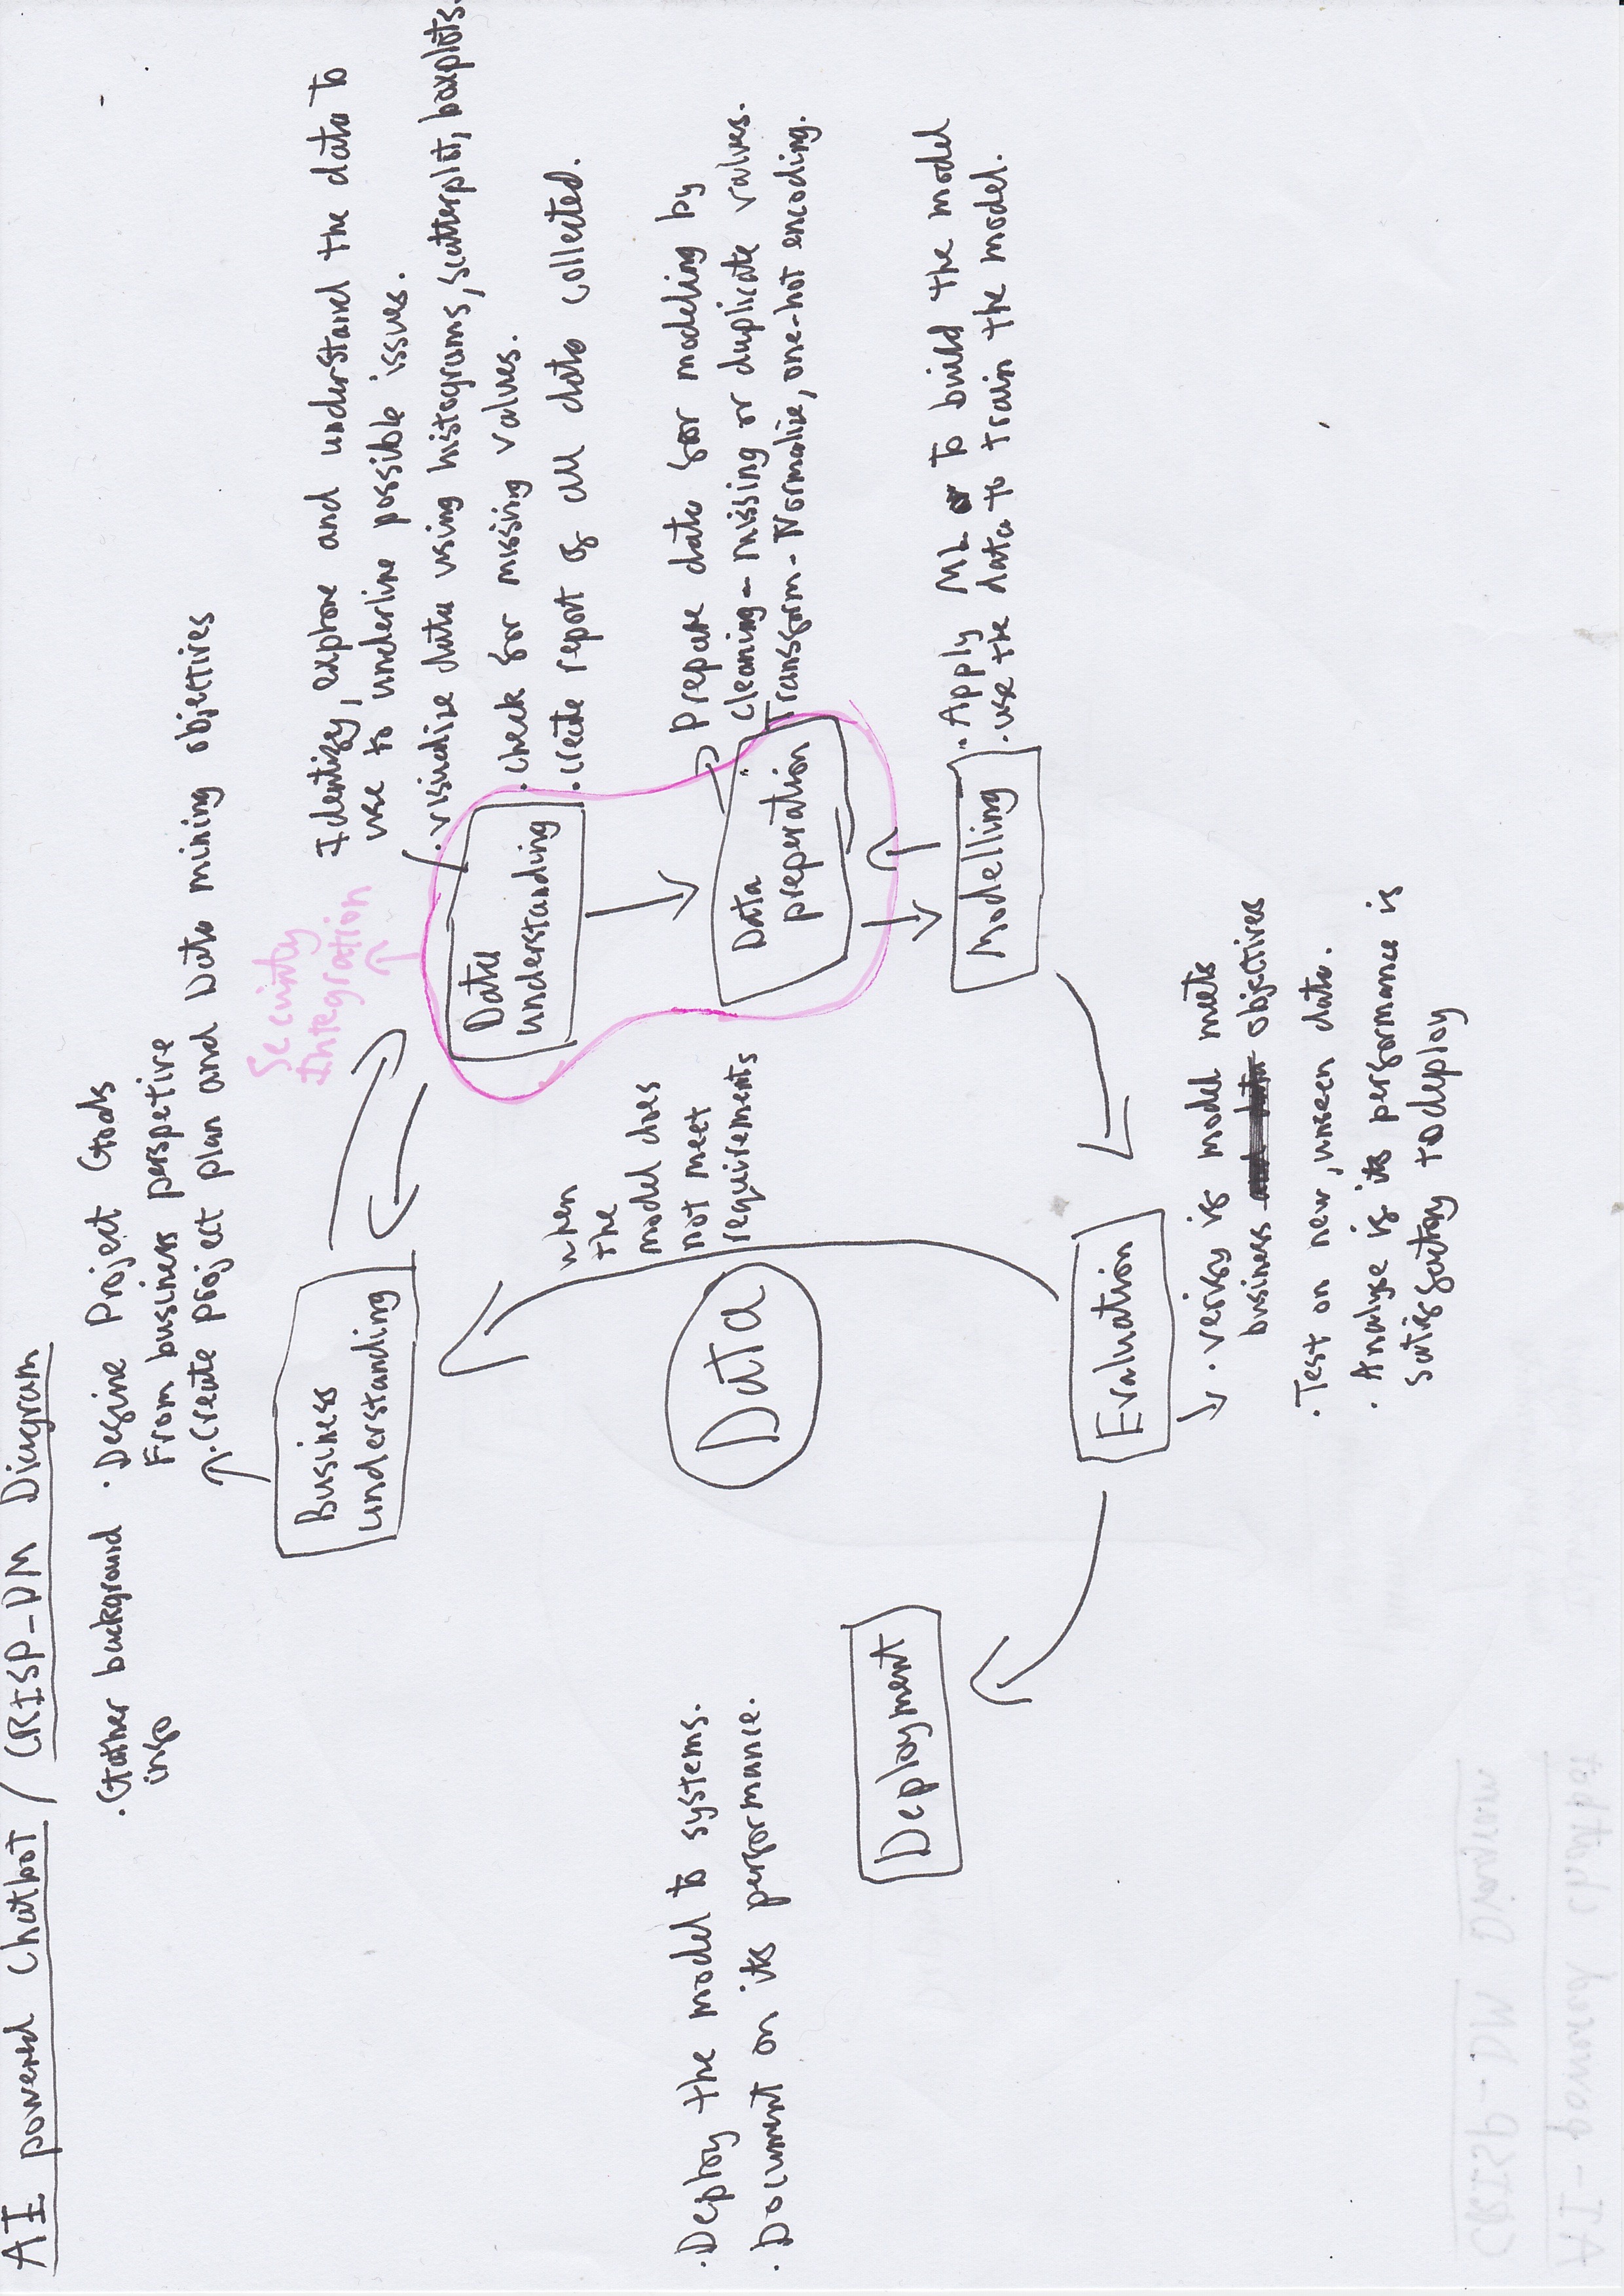 AI powered Chatbot / CRISP-DM Diagram
· Gather background
info
· Define Project Goals
From business perspetive
· Create project plan and Data mining objectives
Business
understanding
Security
Integration
Identify, explore and understand the data to
use to underline possible issues.
· visualize data using histograms, scatterplot, boxplots.
· check for missing values.
· create report of all data collected.
Data
understanding
when
the
model does
not meet
requirements
Data
· Deploy the model to systems.
· Document on its performance.
Prepare data for modeling by
cleaning - missing or duplicate values.
Transform - Normalize, one-hot encoding.
Data
preperation
Deployment
Modelling
· Apply ML to build the model
· use the data to train the model.
Evaluation
· verify if model meets
business and data objectives
· Test on new, unseen data.
· Analyse if its performance is
satisfactory to deploy
CRISP-DM Diagram
AI-powered chatbot